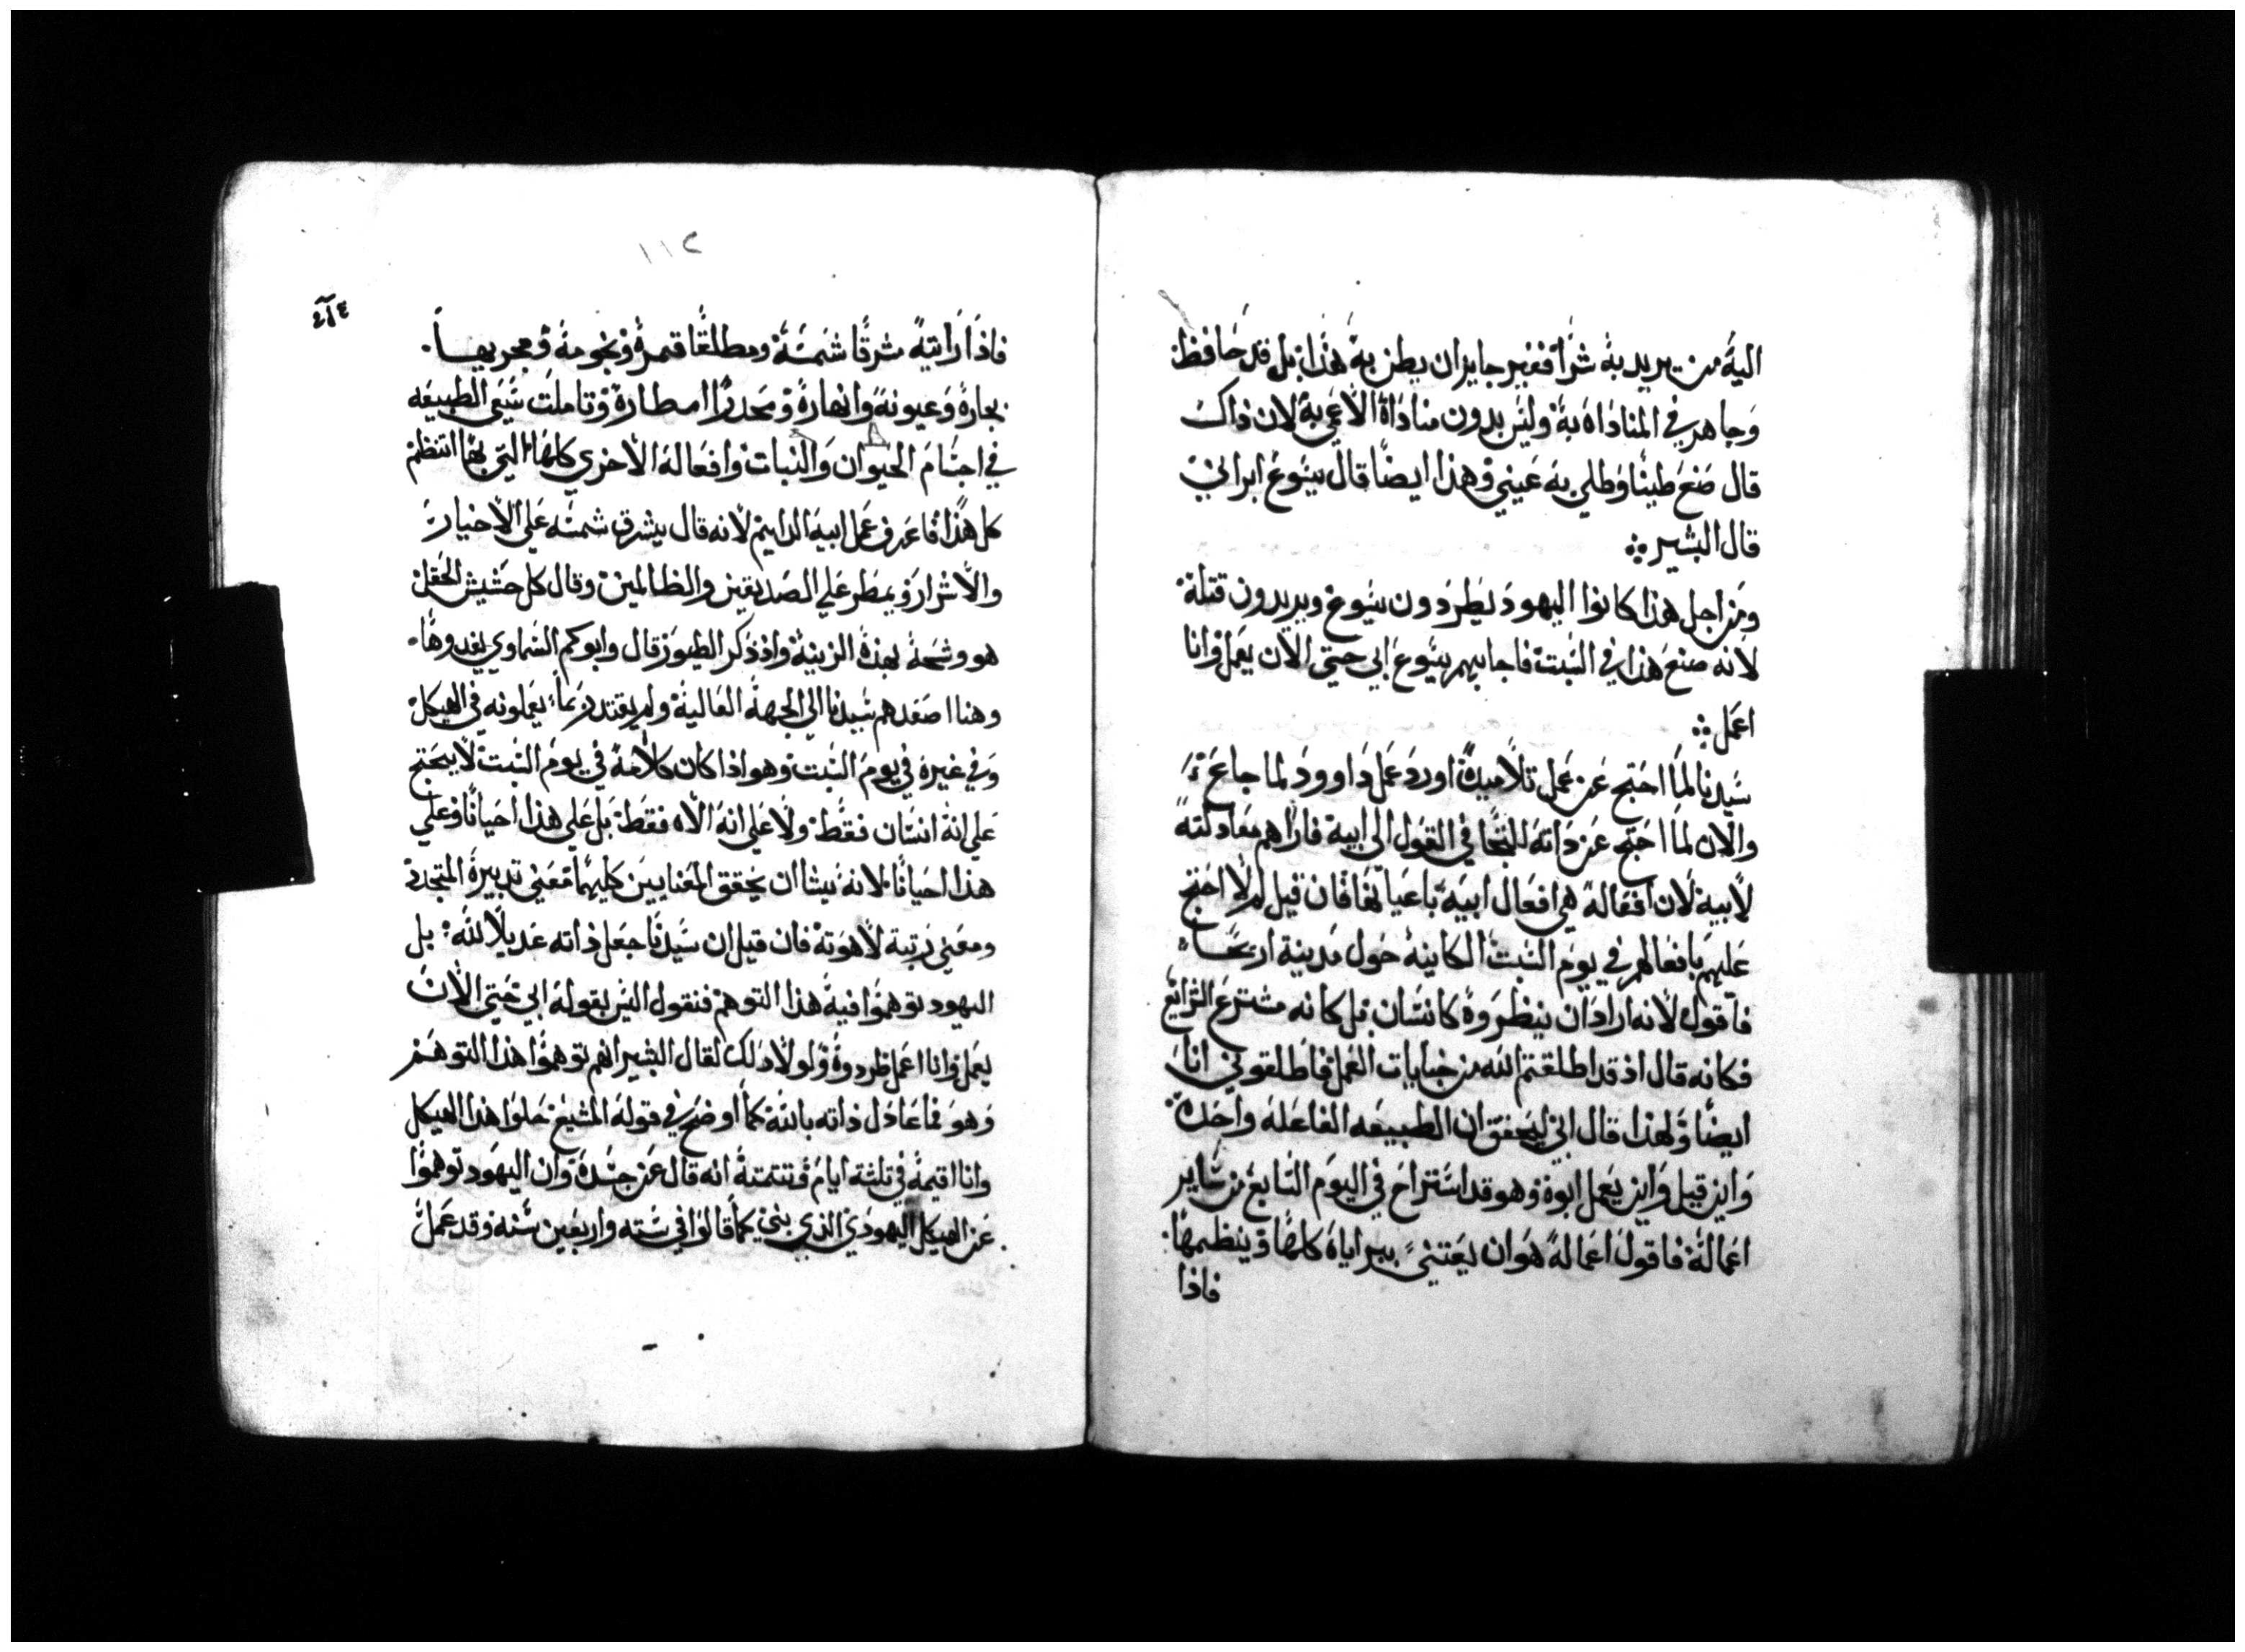 اليه من يريد به شرًا فغير جايزان يظن به هذا بل قد حافظ
وجاهر في المناداه به وليس بدون مناداة الاعمي به لان ذاك
قال صنع طينًا وطلي به عيني وهذا ايضًا قال يسوع ابراني
قال البشير
ومن اجل هذا كانوا اليهود يطردون يسوع ويريدون قتله
لانه صنع هذا في السبت فاجابهم يسوع ابي حتي الان يعمل وانا
اعمل
سيدنا لما احتج عن عمل تلاميذه اورد عمل داوود لما جاع
والان لما احتج عن ذاته التجا في القول الى ابيه فاراهم معادلته
لابيه لان افعاله هي افعال ابيه باعيانها فان قيل لم لا احتج
عليهم بافعالهم في يوم السبت الكاينه حول مدينة اريحا
فاقول لانه اراد ان ينظروه كانسان بل كانه مشترع الشرائع
فكانه قال اذ قد اطلقتم الله من جنايات العمل فاطلقوني انا
ايضًا ولهذا قال اني ليحقق ان الطبيعه الفاعله واحده
واين قيل واين يعمل ابوه وهو قد استراح في اليوم السابع من ساير
اعماله فاقول اعماله هو ان يعتني ببراياه كلها وينظمها
فاذا
١١٢
فاذا رايته مشرقًا شمسه ومطلعًا قمره ونجومه ومجريها
بحاره وعيونه وانهاره ومحدرًا امطاره وتاملت سعي الطبيعه
في اجسام الحيوان والنبات وافعاله الاخري كلها التي بها انتظم
كل هذا فاعرف عمل ابيه الدايم لانه قال يشرق شمسه علي الاخيار
والاشرار ويمطر علي الصديقين والظالمين وقال كل حشيش الحقل
هو وشحه بهذه الزينه واذ ذكر الطيور قال وابوكم السماوي يغدوها
وهنا اصعدهم سيدنا الي الجهة العالية ولم يعتد بما يعملونه في الهيكل
وفي غيره في يوم السبت وهو اذا كان كلامه في يوم السبت لا يحتج
علي انه انسان فقط ولا علي انه الاه فقط بل علي هذا احيانًا وعلي
هذا احيانًا لانه يشا ان يحقق المعنايين كليهما معني تدبيره المتجدد
ومعني رتبة لاهوته فان قيل ان سيدنا جعل ذاته عديلًا لله بل
اليهود توهموا فيه هذا التوهم فنقول اليس بقوله ابي حتي الان
يعمل وانا اعمل طردوه ولولا ذلك لقال البشير انهم توهموا هذا التوهم
وهو فما عادل ذاته بالله كما اوضح في قوله المسيح حلوا هذا الهيكل
وانا اقيمه في ثلثه ايام وتتمته انه قال عن جسده وان اليهود توهموا
عن الهيكل اليهودي الذي بني كما قالوا في سته واربعين سنه وقد عمل